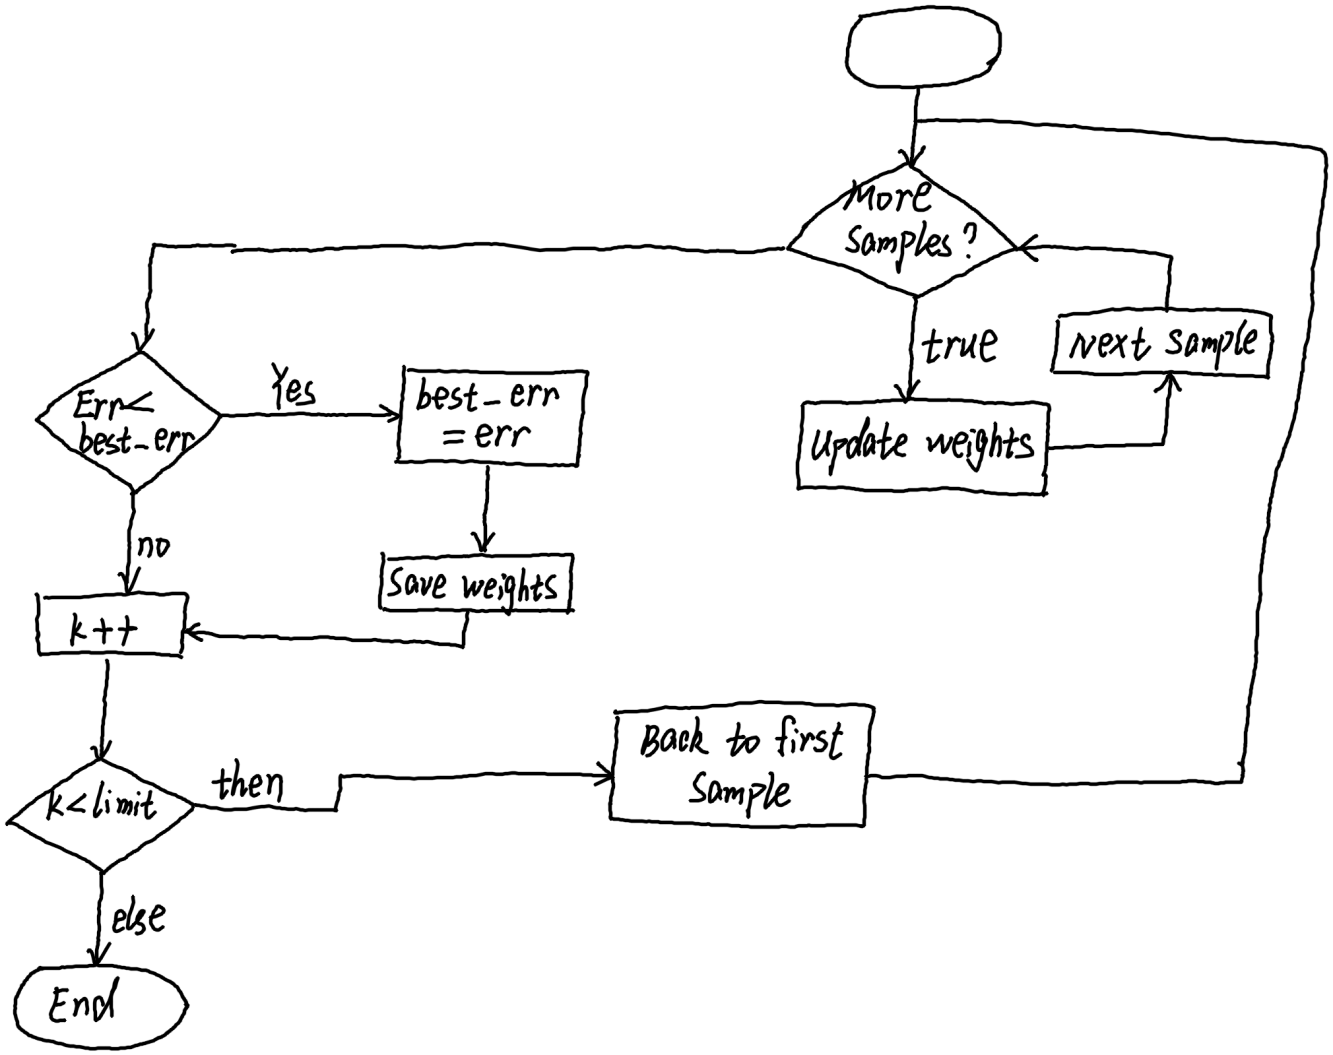 More
samples?
true
Next sample
Update weights
Err<
best_err
Yes
best_err
= err
no
Save weights
k++
k<limit
then
Back to first
sample
else
End